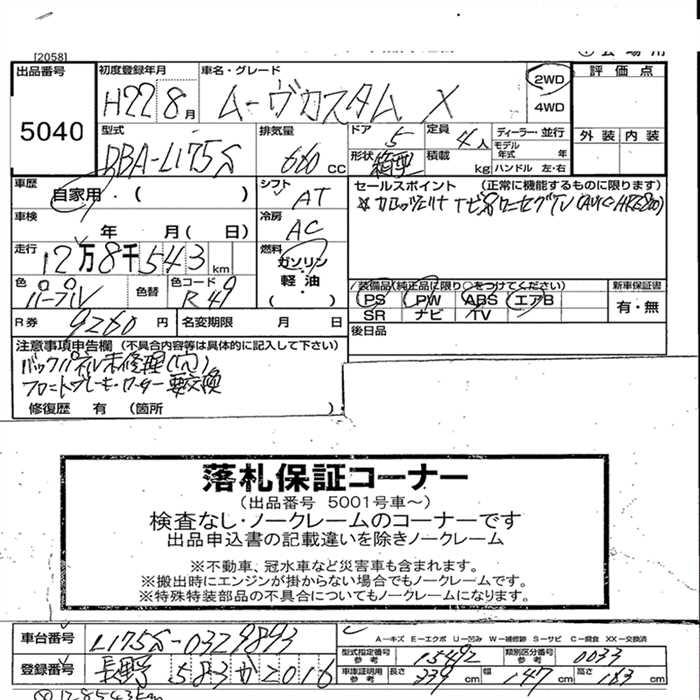 [2058]
出品番号
5040
初度登録年月
H22 8月
車名・グレード
ムーヴカスタム X
2WD
4WD
評価点
外装 内装
型式
DBA-L175S
排気量
660 cc
ドア 5
定員 4人
形状 箱型
積載 kg
ディーラー・並行
モデル年式 年
ハンドル 左・右
車歴
自家用・( )
シフト
AT
車検
年 月( 日)
冷房
AC
走行
12万8千543km
燃料
ガソリン
軽油
( )
セールスポイント (正常に機能するものに限ります)
色
パープル
色替
色コード
R49
装備品(純正品に限り○をつけてください)
PS PW ABS エアB
SR ナビ TV
新車保証書
有・無
R券 9260円
名変期限 月 日
後日品
注意事項申告欄(不具合内容等は具体的に記入して下さい)
バックパネル未修理(穴)
フロントブレーキローター要交換
修復歴 有 (箇所 )
落札保証コーナー
(出品番号 5001号車~)
検査なし・ノークレームのコーナーです
出品申込書の記載違いを除きノークレーム
※不動車、冠水車など災害車も含まれます。
※搬出時にエンジンが掛からない場合でもノークレームです。
※特殊特装部品の不具合についてもノークレームになります。
車台番号
L175S-0329893
A-キズ E-エクボ U-凹み W-補修跡 S-サビ C-腐食 XX-交換済
型式指定番号 参考 15492
類別区分番号 参考 0033
登録番号
長野 583か2016
車庫証明用 参考 長さ 339cm 幅 147cm 高さ 163cm